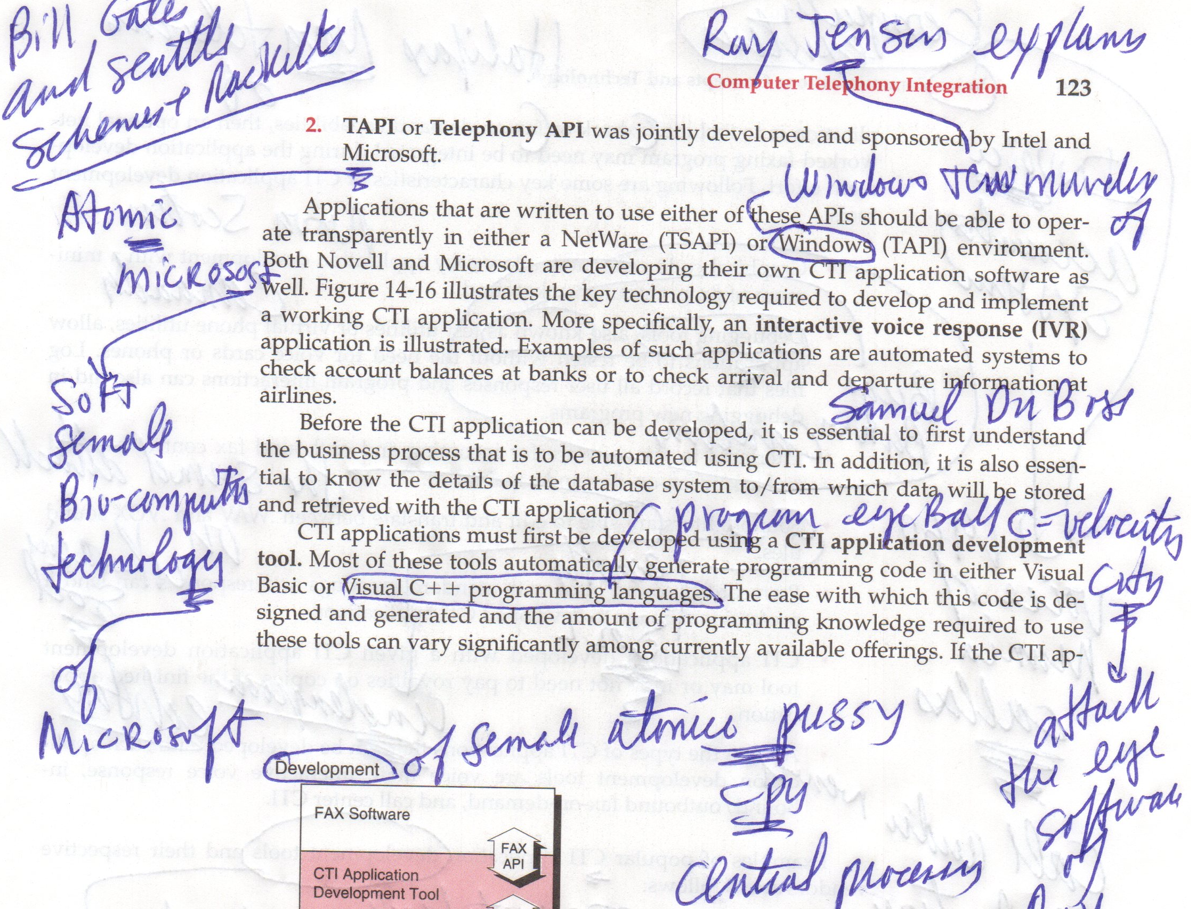 Bill Gates
and seattle
schemes + Rackets
Ray Jensus explans
Computer Telephony Integration 123
2. TAPI or Telephony API was jointly developed and sponsored by Intel and
Microsoft.
Windows
murder
of
Atomic
microsoft
Applications that are written to use either of these APIs should be able to oper-
ate transparently in either a NetWare (TSAPI) or Windows (TAPI) environment.
Both Novell and Microsoft are developing their own CTI application software as
well. Figure 14-16 illustrates the key technology required to develop and implement
a working CTI application. More specifically, an interactive voice response (IVR)
application is illustrated. Examples of such applications are automated systems to
check account balances at banks or to check arrival and departure information at
airlines.
Samuel Du Boss
Soft
female
Bio-computer
technology
of
Microsoft
Before the CTI application can be developed, it is essential to first understand
the business process that is to be automated using CTI. In addition, it is also essen-
tial to know the details of the database system to/from which data will be stored
and retrieved with the CTI application.
program eyeBall C-velocity
City
CTI applications must first be developed using a CTI application development
tool. Most of these tools automatically generate programming code in either Visual
Basic or Visual C++ programming languages. The ease with which this code is de-
signed and generated and the amount of programming knowledge required to use
these tools can vary significantly among currently available offerings. If the CTI ap-
attack
the eye
software
of
of female atomic pussy
CPU
Central process
Development
FAX Software
FAX
API
CTI Application
Development Tool